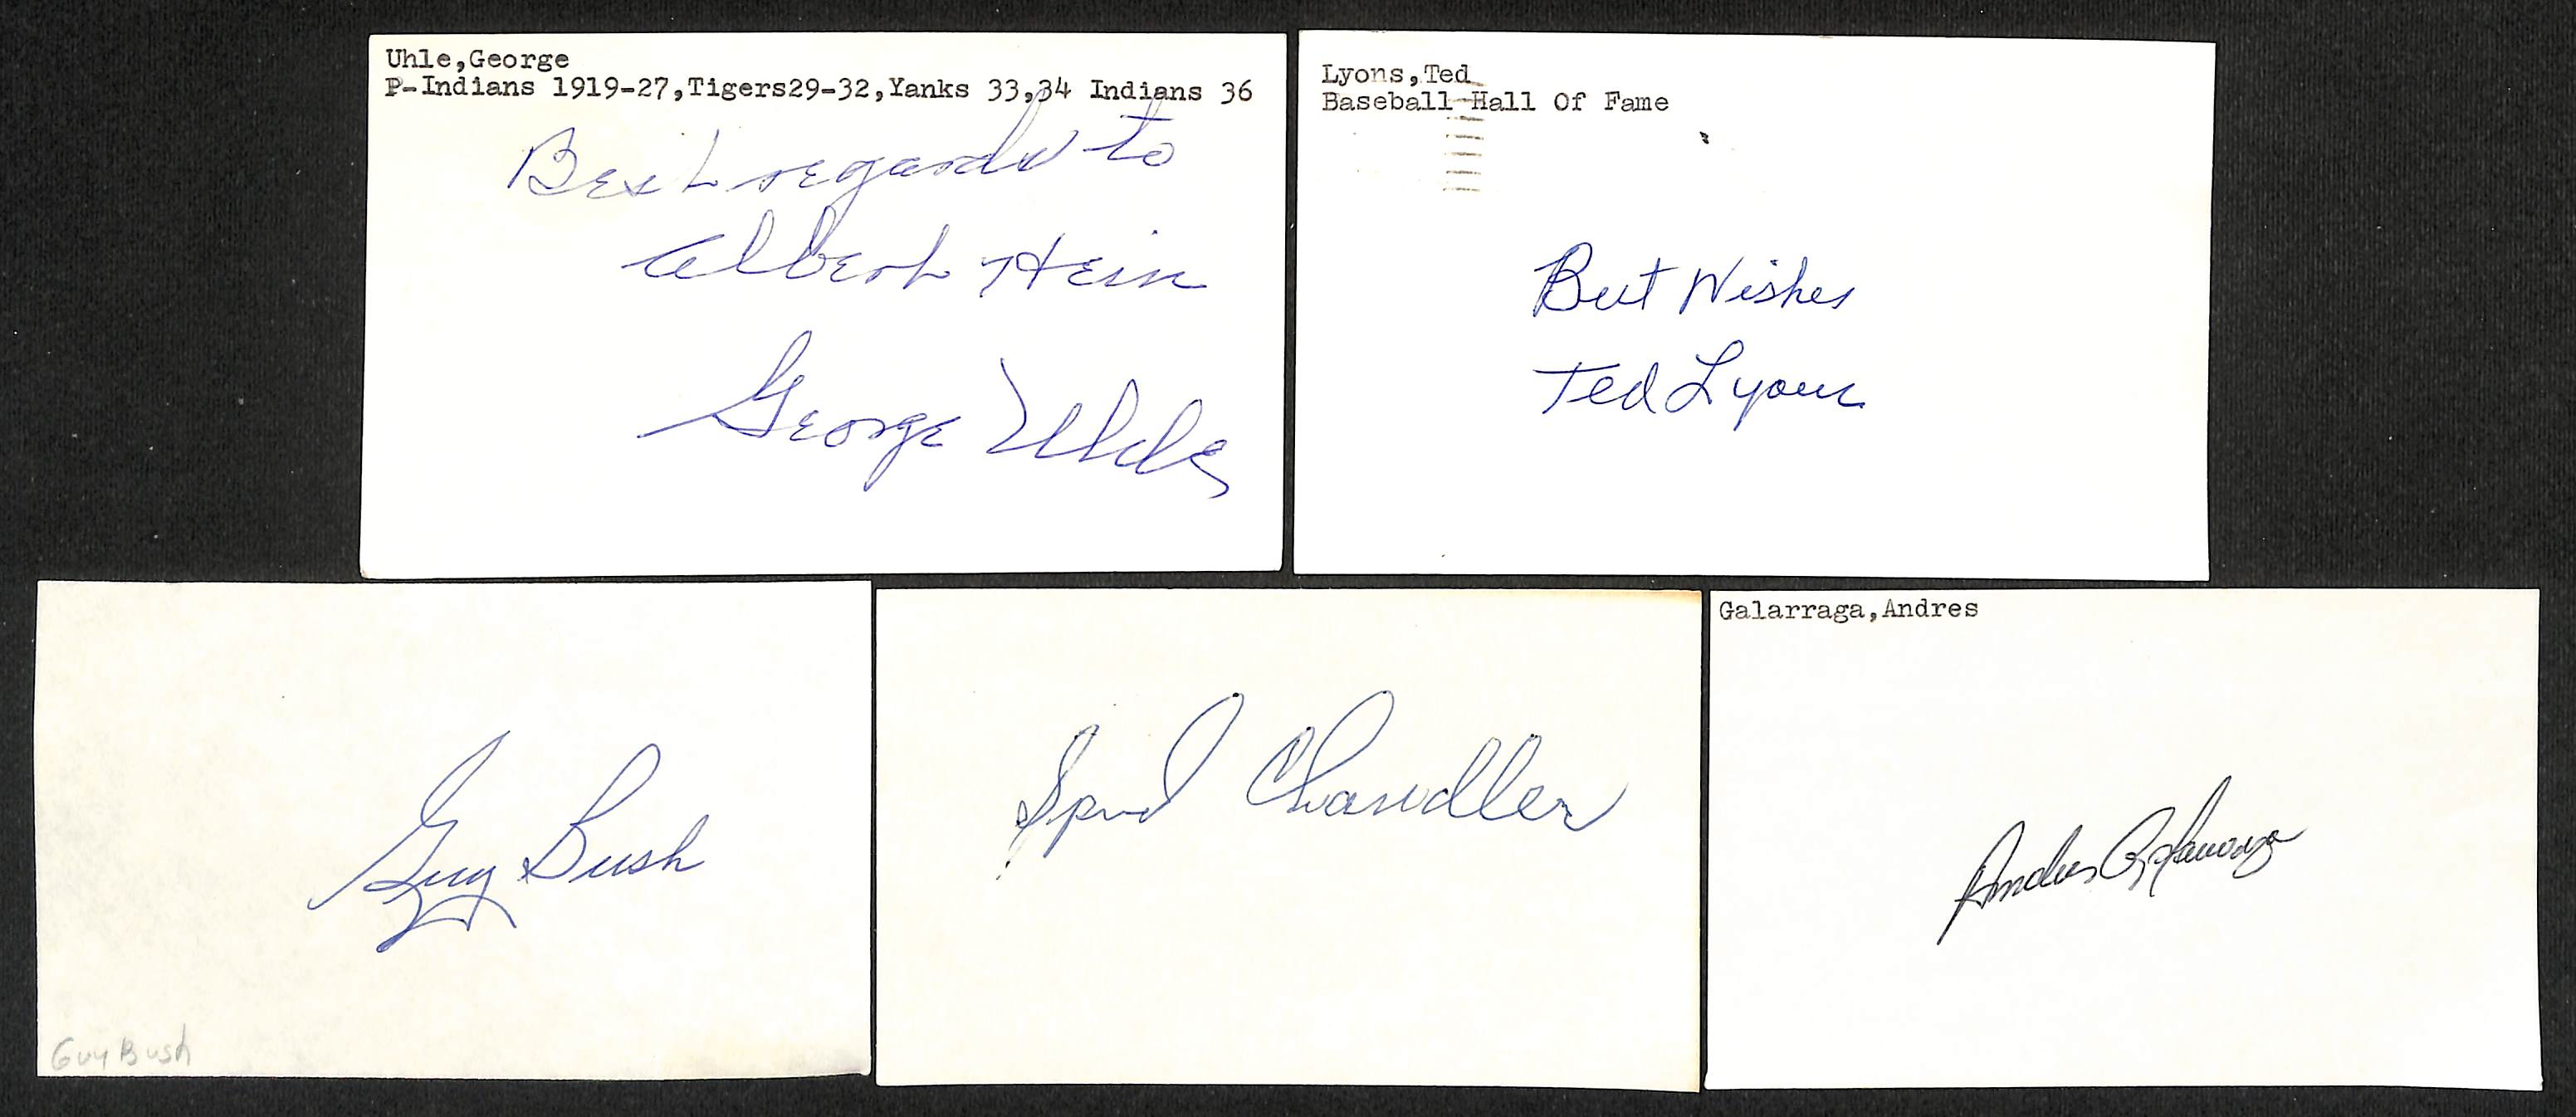 Uhle,George
P-Indians 1919-27,Tigers29-32,Yanks 33,34 Indians 36
Best regards to
Albert Hein
George Uhle
Lyons,Ted
Baseball Hall Of Fame
Best Wishes
Ted Lyons
Guy Bush
Guy Bush
Spud Chandler
Galarraga,Andres
Andres Galarraga